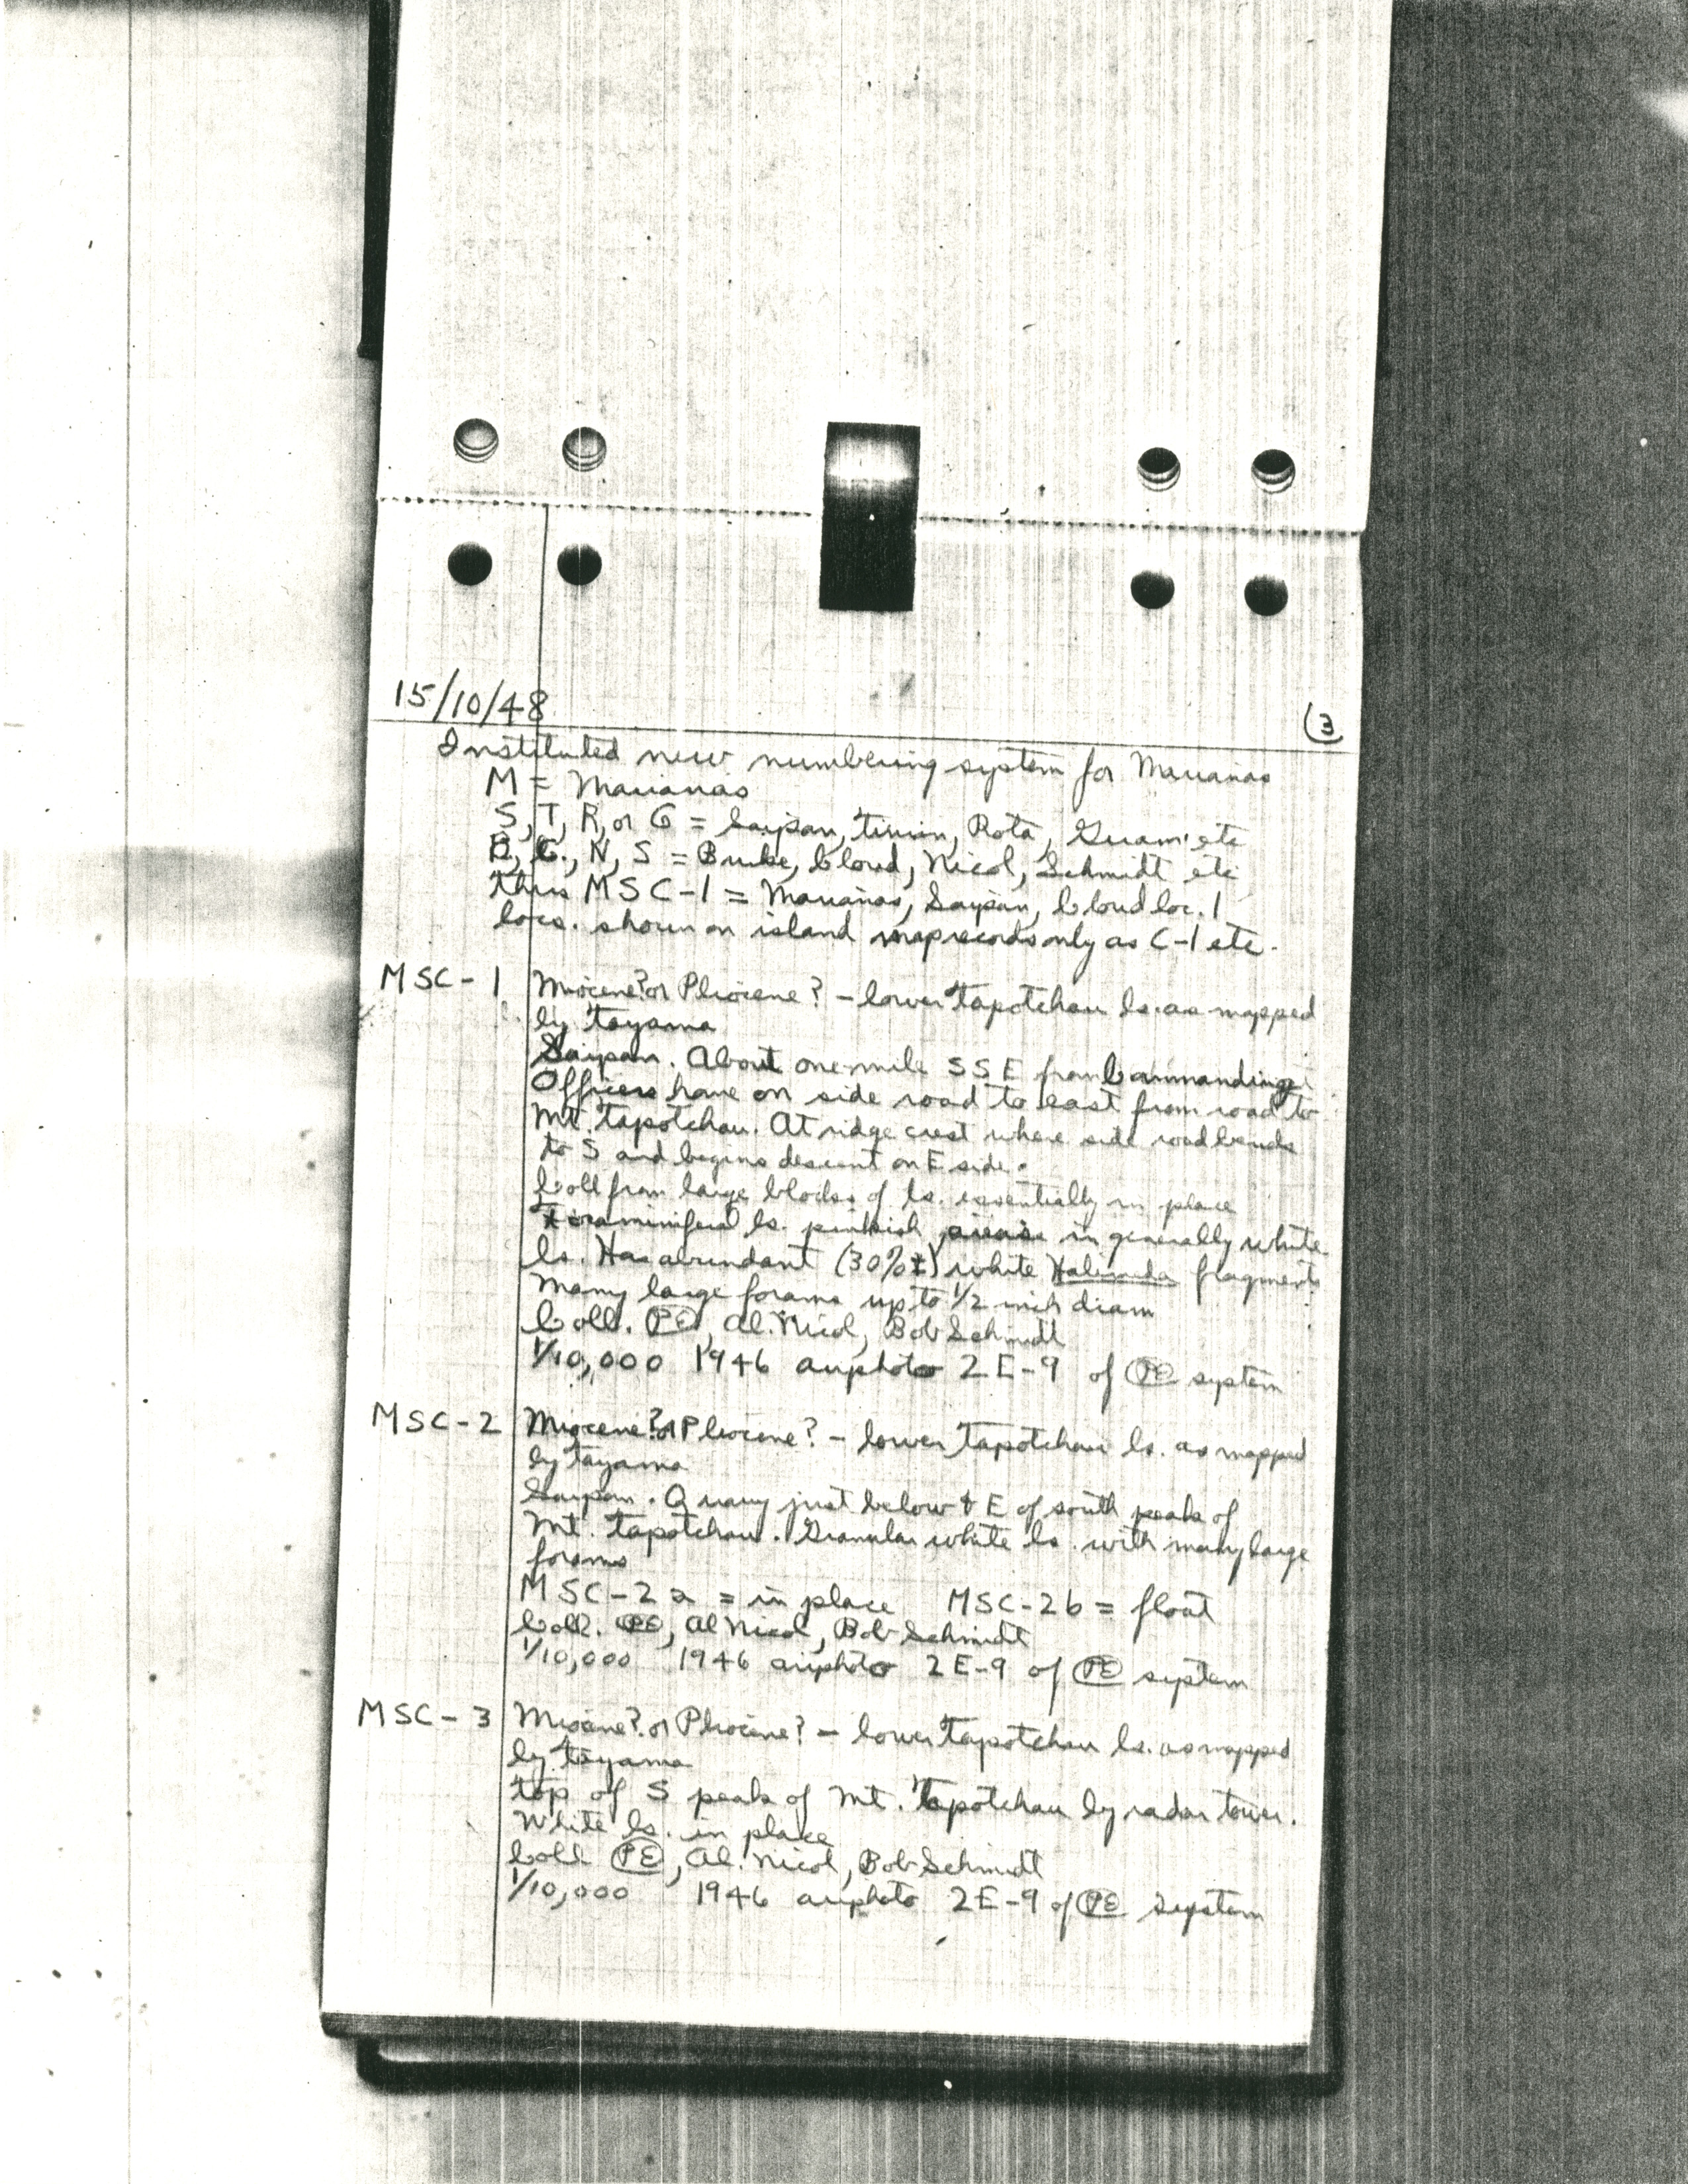 15/10/48
(3
Instituted new numbering system for Marianas
M = Marianas
S, T, R, or G = Saipan, Tinian, Rota, Guam etc
B, C., N, S = Burke, Cloud, Nicol, Schmidt etc
thus MSC-1 = Marianas, Saipan, Cloud loc. 1
locs. shown on island map records only as C-1 etc.
MSC-1 Miocene? or Pliocene? - lower Tapotchau ls. as mapped
by Tayama
Saipan. About one mile SSE from Commanding
Officers home on side road to east from road to
Mt. Tapotchau. At ridge crest where side road bends
to S and begins descent on E side.
Coll from large blocks of ls. essentially in place
Foraminiferal ls. pinkish areas in generally white
ls. Has abundant (30%±) white Halimeda fragments
Many large forams up to 1/2 inch diam
Coll. PE, Al. Nicol, Bob Schmidt
1/10,000 1946 airphoto 2E-9 of PE system
MSC-2 Miocene? or Pliocene? - lower Tapotchau ls. as mapped
by Tayama
Saipan. Quarry just below & E of south peak of
Mt. Tapotchau. Granular white ls. with many large
forams
MSC-2a = in place MSC-2b = float
Coll. PE, Al Nicol, Bob Schmidt
1/10,000 1946 airphoto 2E-9 of PE system
MSC-3 Miocene? or Pliocene? - lower Tapotchau ls. as mapped
by Tayama
Top of S peak of Mt. Tapotchau by radar tower.
White ls. in place
Coll PE, Al. Nicol, Bob Schmidt
1/10,000 1946 airphoto 2E-9 of PE system